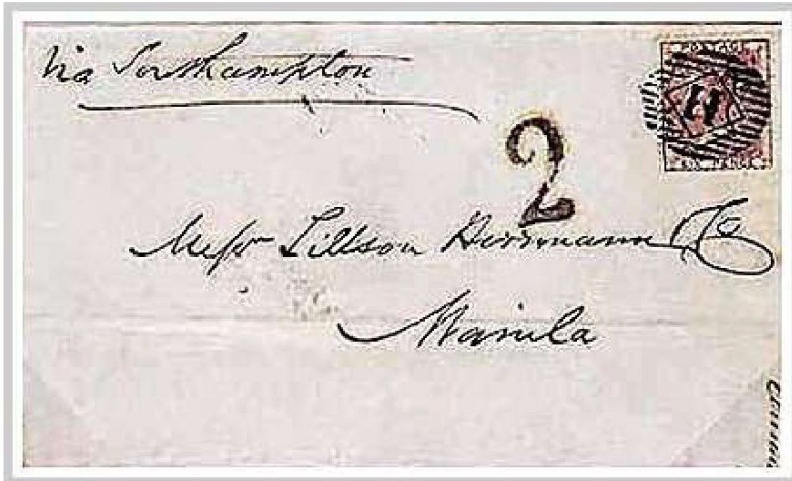 Via Southampton
POSTAGE
11
SIX PENCE
2
Messr Tillson Herrmann & Co
Manila